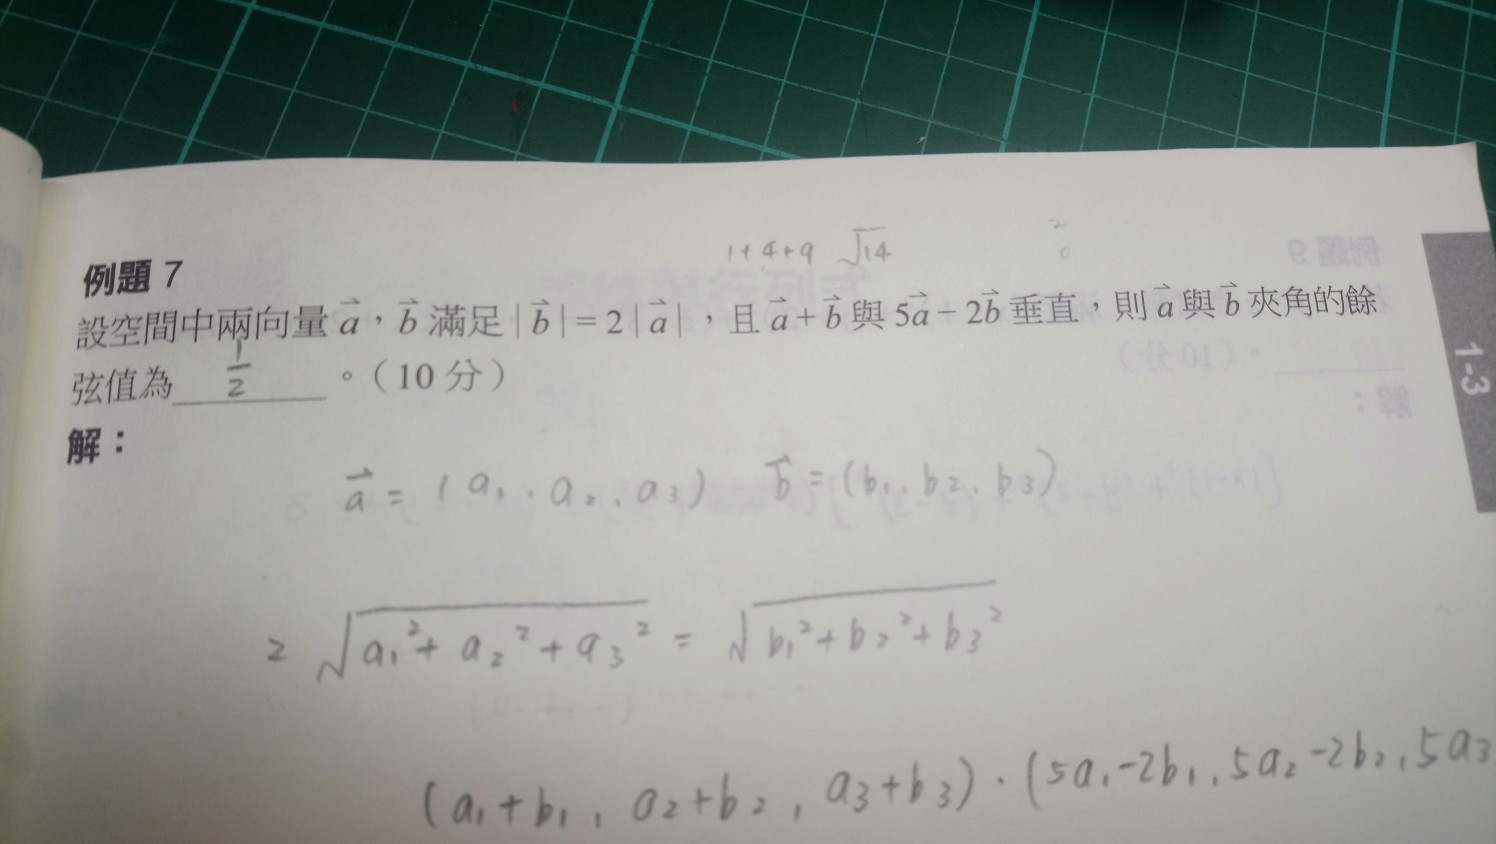 1+4+9 √14 2
0
例題 7
設空間中兩向量 a⃗,b⃗ 滿足 | b⃗ | = 2 | a⃗ |,且 a⃗ + b⃗ 與 5a⃗ − 2b⃗ 垂直,則 a⃗ 與 b⃗ 夾角的餘
弦值為 1/2 。(10 分)
1-3
解:
a⃗ = (a₁, a₂, a₃) b⃗ = (b₁, b₂, b₃)
2 √(a₁² + a₂² + a₃²) = √(b₁² + b₂² + b₃²)
(a₁+b₁, a₂+b₂, a₃+b₃) · (5a₁-2b₁, 5a₂-2b₂, 5a₃